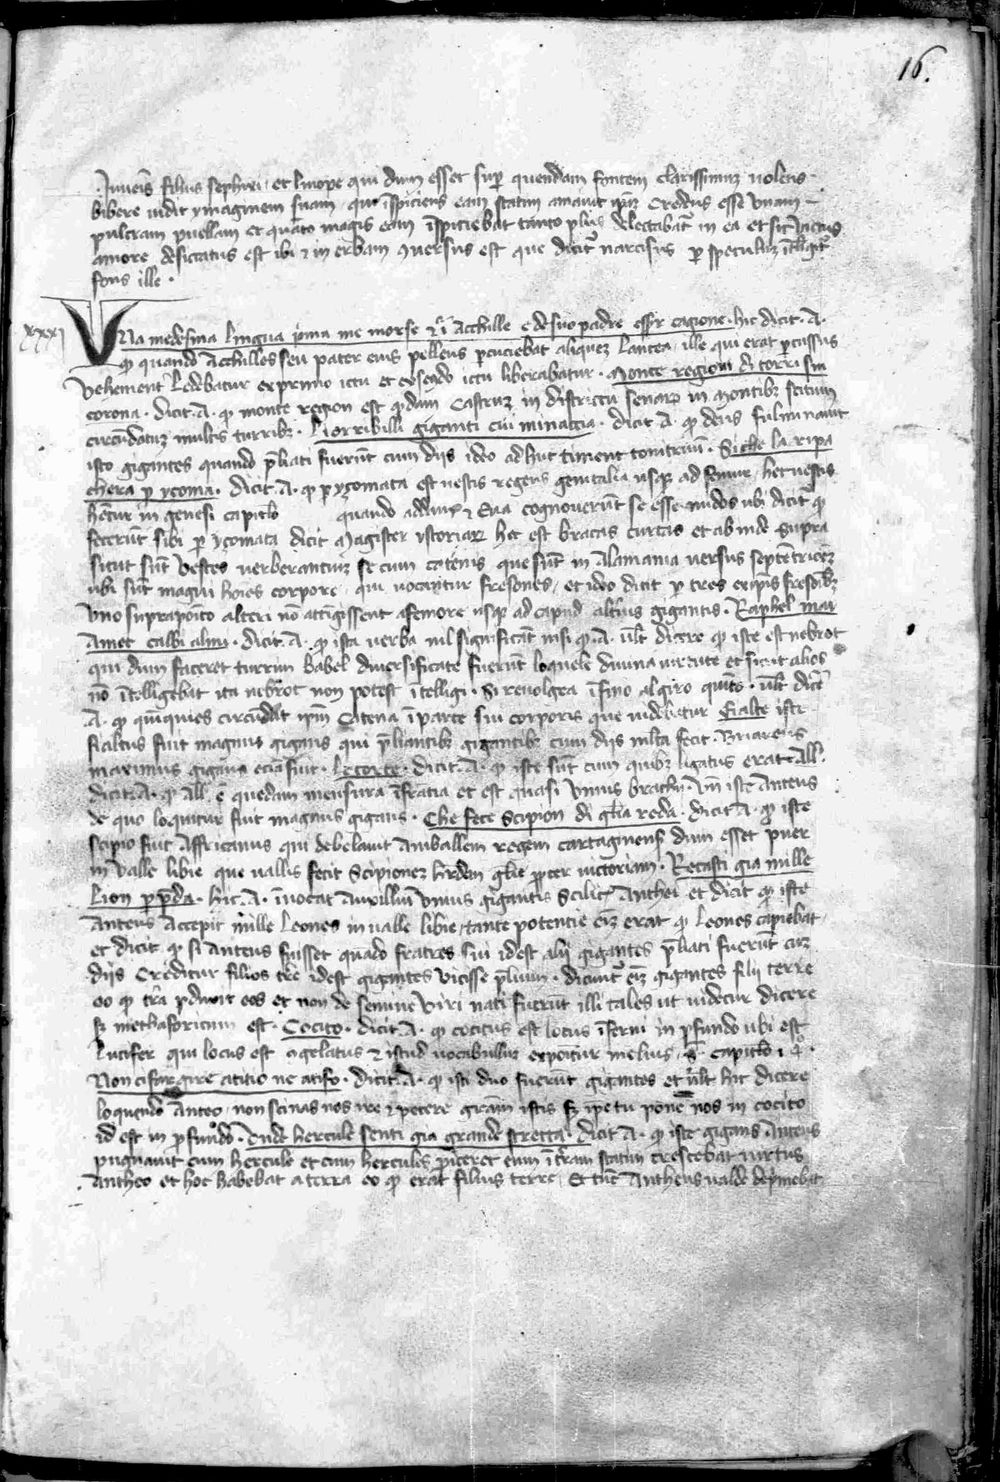 16.
Juvenis filius sephyri et linope qui dum esset super quendam fontem clarissimum uolens
bibere uidit ymaginem suam que inspiciens eam statim amauit ipsam credens esse unam
pulcram puellam et quanto magis eam inspiciebat tanto plus delectabatur in ea et sic uictus
amore desiccatus est ibi et in erbam conuersus est que dicitur narcisus per speculum intelligitur
fons ille .
xxxi
Vna medesma lingua prima me morse et ibi Acchille e de suo padre esser cagione . hic dicit . A .
quod quando Acchilles seu pater eius pelleus percuciebat aliquem lancea ille qui erat percussus
vehementer ledebatur ex primo ictu et ex secundo ictu liberabatur . Monte region di torri sin
corona . dicit . A . quod monte region est quoddam castrum in districtu senarum in montibus scitum
circumdatum multis turribus . Li orribilli giganti cui minaccia . dicit A . quod deus fulminauit
isto gigantes quando preliati fuerunt cum diis ideo adhuc timent tonitruum . Si che la ripa
chera per yçoma . dicit . A . quod peryçomata est uestis regens genitalia usque ad femur , hec uestis
habetur in genesi capitulo quando addam et Eua cognouerunt se esse nudos ubi dicitur quod
fecerunt sibi peryçomata dicit magister ystoriarum hec est bracas curtas et ab inde supra
sicut sunt vestes uerberantium se cum catenis que sunt in Alamania uersus septemtrionem
ubi sunt magni homines corpore , qui uocantur fresones , et ideo dicit quod tres ex ipsis fresonibus
uno supraposito alteri non attigissent a femore usque ad capud alterius gigantis . Raphel mai
Amec calbi almi . dicit . A . quod ista uerba nil significant nisi quod . A . uult dicere quod iste est nebrot
qui dum faceret turrim babel diuersificate fuerunt loquele diuina uirtute et sicut alios
non intelligebat ita nebrot non potest intelligi . Si reuolgea infino al giro quinto . uult dicere
A . quod quinquies circumdat ipsum catena in parte sui corporis que uidebatur Fialte iste
fialtus fuit magnus gigans qui preliantibus gigantibus cum diis multa fecit . Briareus
maximus gigans ecia fuit . Lecorte . dicit . A . quod iste sunt cum quibus ligatus erat . All .
dicit . A . quod all . e quedam mensura in fratia et est quasi unius brachii . iste Anteus
de quo loquitur fuit magnus gigans . Che fece scipion di gloria reda . dicit A . quod iste
scipio fuit Affricanus qui debelauit Aniballem regem cartaginensem dum esset puer
in valle libie que uallis fecit scipionem heredem glorie propter uictoriam . Recasti gia mille
Lion per preda . hic . A . inuocat auxillium unius gigantis scilicet Anthei et dicit quod iste
Anteus accepit mille leones in ualle libie , tante potentie enim erat quod leones capiebat ,
et dicit quod si Anteus fuisset quando fratres sui idest alii gigantes preliati fuerunt cum
diis creditur filios terre idest gigantes vicisse prelium . dicuntur enim gigantes filii terre
eo quod terra perduxit eos et non de semine viri nati fuerunt illi tales ut uidetur dicere
sed methaforicum est . Cocito . dicit . A . quod cocitus est locus inferni in profundo ubi est
Lucifer qui locus est agelatus et istud uocabullum exponitur melius capitulo .
Non ci far gire a titio ne a tifo . dicit . A . quod isti duo fuerunt gigantes et uult hic dicere
loquendo Anteo , non scinas nos ire et petere gratiam istis sed ipse tu pone nos in cocito
id est in profundo . Onde hercule senti gia grande stretta . dicit A . quod iste gigans Anteus
pugnauit cum hercule et cum hercules proiceret eum in terram statim crescebat uirtus
Antheo et hoc habebat a terra eo quod erat filius terre , Et tunc Antheus ualde deprimebat